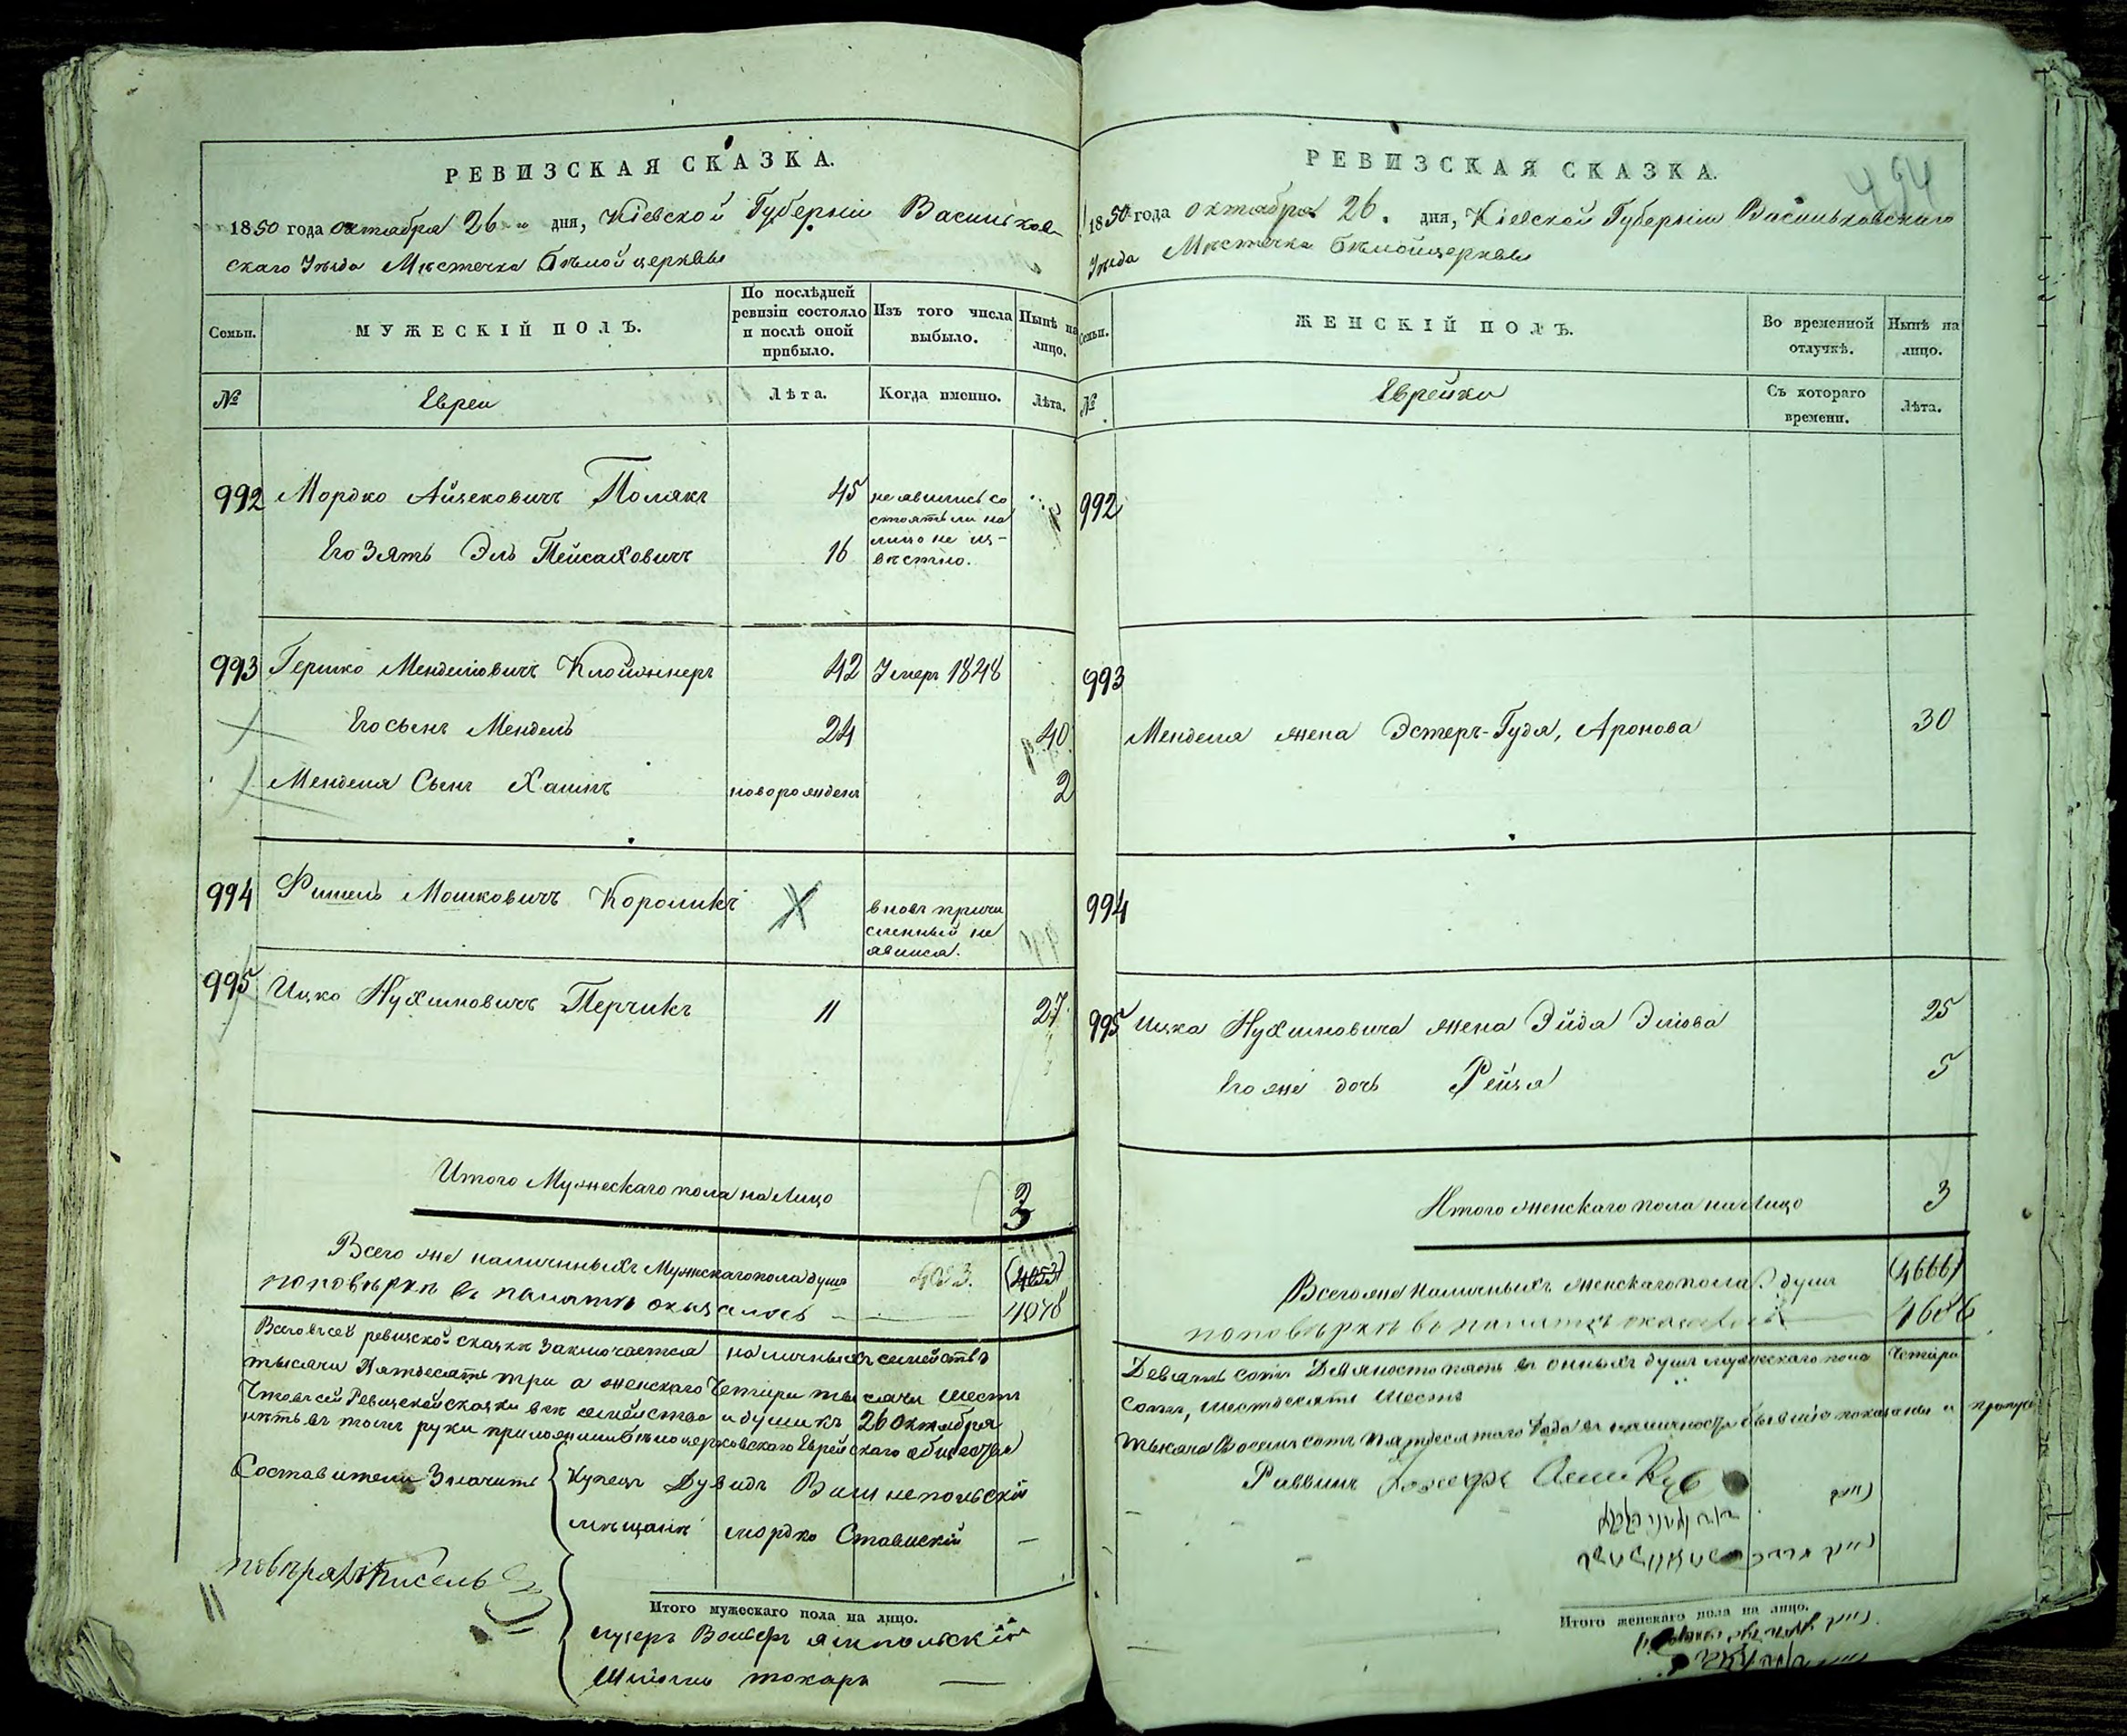 РЕВИЗСКАЯ СКАЗКА.
1850 года октября 26 дня, Кіевской Губерніи Васильков-
скаго Уѣзда Мѣстечка Бѣлой церквы
Семьи.
МУЖЕСКІЙ ПОЛЪ.
По послѣдней ревизіи состояло и послѣ оной прибыло.
Изъ того числа выбыло.
Нынѣ на лицо.
№
Евреи
Лѣта.
Когда именно.
Лѣта.
992 Мордко Айзековичъ Полякъ 45 не явились со
стоятъ ли на
лицо не из-
вѣстно.
Его Зять Эль Пейсаховичъ 16
993 Гершко Менделіовичъ 42 Умеръ 1848
Его сынъ Мендель 24 40
Менделя Сынъ Хаимъ новорожденъ 2
994 Фишель Мошковичъ Короликъ вновь причи
сленный не
явился.
995 Ицко Нухимовичъ Перчикъ 11 27
Итого Мужескаго пола на Лицо 3
Всего же наличныхъ Мужескаго пола душъ 4053. (4053)
по повѣркѣ въ палатѣ оказалось 4078
Всего въ сей ревизской сказкѣ Заключается наличныхъ семействъ
тысячи Пятдесятъ три а женскаго Четыри тысячи Шестъ
Что въ сей Ревизской сказки всѣ семейства и души къ 26 Октября
нѣтъ въ томъ руки приложили Бѣлоцерковскаго Еврейскаго общества
Составители Значитъ
Купецъ Дувидъ Вишнепольскій
мѣщанъ мордко Ставискій
Итого мужескаго пола на лицо.
Вольфъ ямпольскій
токаръ
РЕВИЗСКАЯ СКАЗКА.
494
1850 года октября 26. дня, Кіевской Губерніи Васильковскаго
Уѣзда Мѣстечка Бѣлойцерквы
Семьи.
ЖЕНСКІЙ ПОЛЪ.
Во временной отлучкѣ.
Нынѣ на лицо.
№
Еврейки
Съ котораго времени.
Лѣта.
992
993
Менделя жена Эстеръ-Гудя, Аронова 30
994
995 Ицка Нухимовича жена Эйдя Эліова 25
Его же дочь Рейзя 5
Итого женскаго пола на Лицо 3
Всего же Наличныхъ женскаго пола душъ (4666)
по повѣркѣ въ палатѣ оказалось 4686
Девять сотъ Девяносто пять въ онныхъ душъ мужескаго пола Четыри
сотъ, шестдесятъ Шесть
тысяча Восемь сотъ пятдесятаго Года въ наличности бывшіе показаны и
Раввинъ
Итого женскаго пола на лицо.